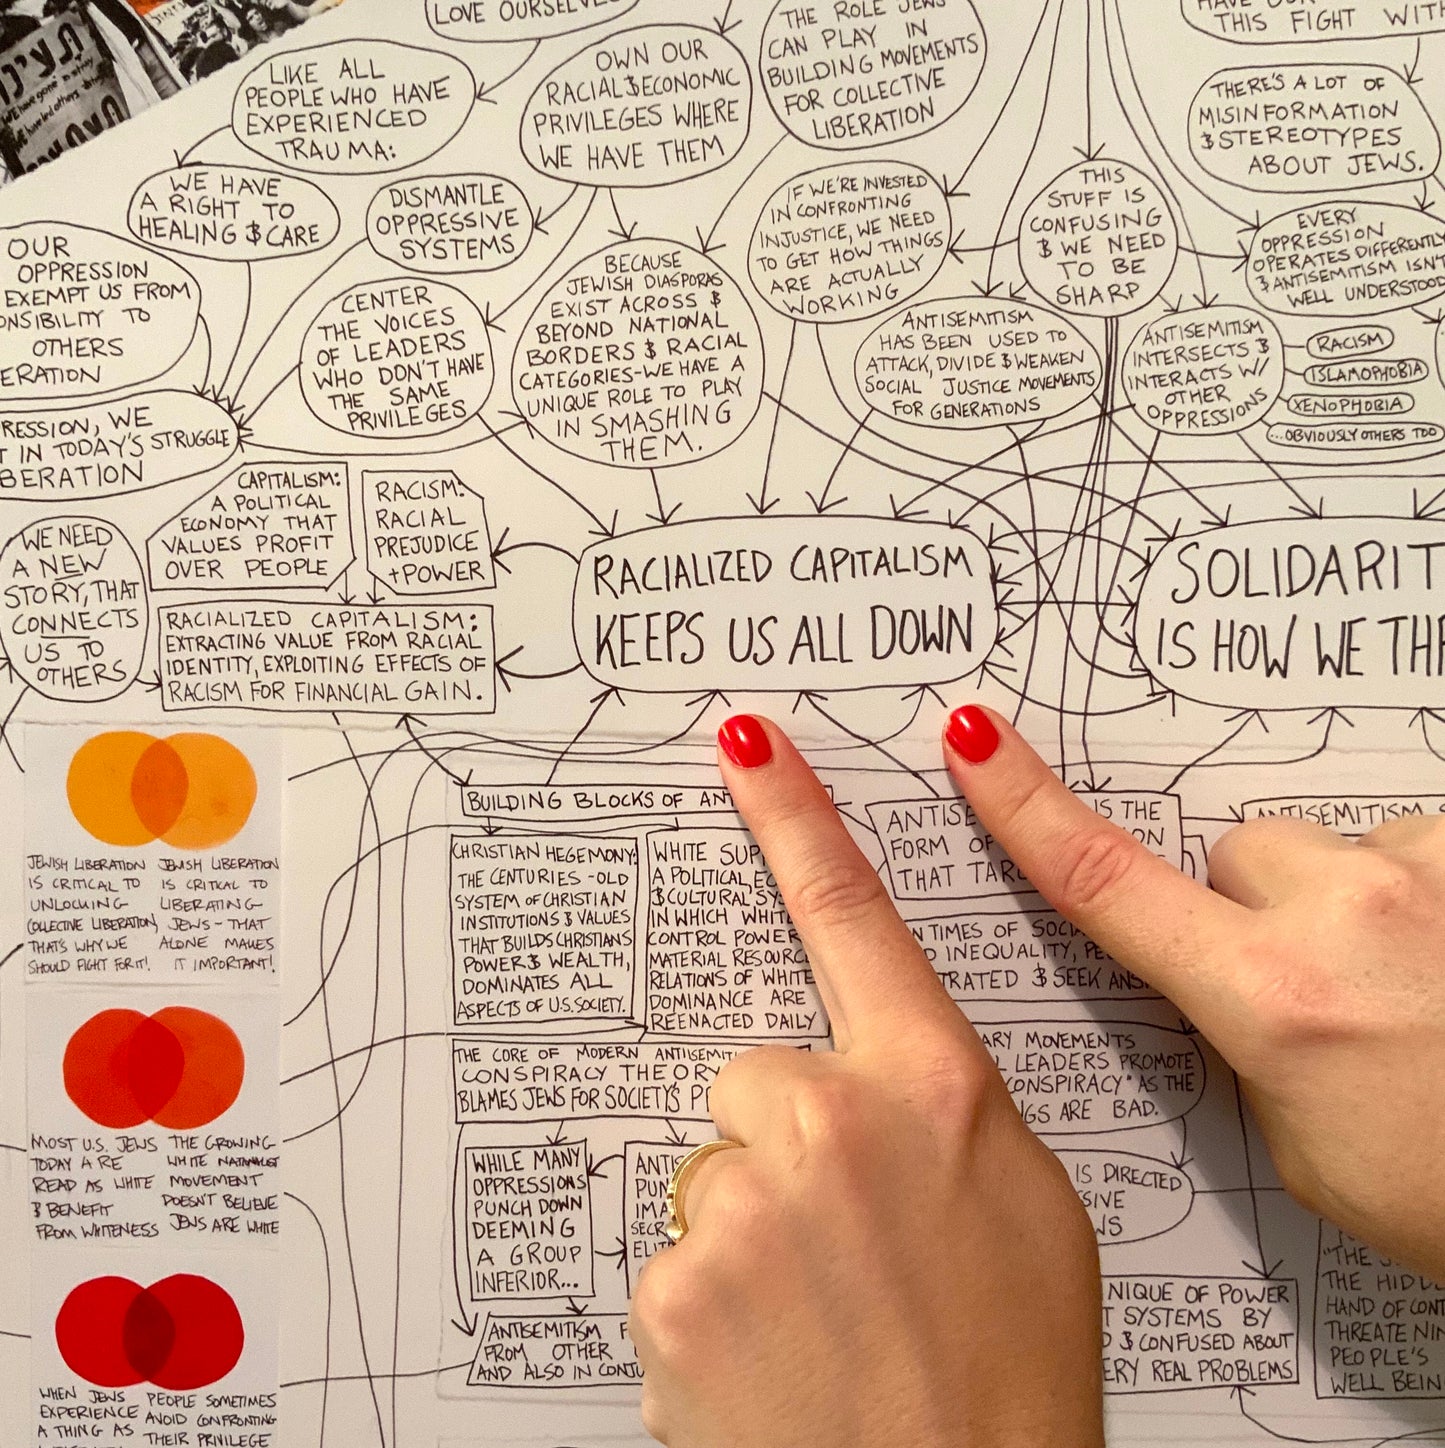 LOVE OURSELVES
LIKE ALL
PEOPLE WHO HAVE
EXPERIENCED
TRAUMA:
OWN OUR
RACIAL & ECONOMIC
PRIVILEGES WHERE
WE HAVE THEM
THE ROLE JEWS
CAN PLAY IN
BUILDING MOVEMENTS
FOR COLLECTIVE
LIBERATION
THIS FIGHT WITH
THERE'S A LOT OF
MISINFORMATION
& STEREOTYPES
ABOUT JEWS.
WE HAVE
A RIGHT TO
HEALING & CARE
DISMANTLE
OPPRESSIVE
SYSTEMS
IF WE'RE INVESTED
IN CONFRONTING
INJUSTICE, WE NEED
TO GET HOW THINGS
ARE ACTUALLY
WORKING
THIS
STUFF IS
CONFUSING
& WE NEED
TO BE
SHARP
EVERY
OPPRESSION
OPERATES DIFFERENTLY
& ANTISEMITISM ISN'T
WELL UNDERSTOOD
OUR
OPPRESSION
EXEMPT US FROM
ONSIBILITY TO
OTHERS
ERATION
CENTER
THE VOICES
OF LEADERS
WHO DON'T HAVE
THE SAME
PRIVILEGES
BECAUSE
JEWISH DIASPORAS
EXIST ACROSS &
BEYOND NATIONAL
BORDERS & RACIAL
CATEGORIES-WE HAVE A
UNIQUE ROLE TO PLAY
IN SMASHING
THEM.
ANTISEMITISM
HAS BEEN USED TO
ATTACK, DIVIDE & WEAKEN
SOCIAL JUSTICE MOVEMENTS
FOR GENERATIONS
ANTISEMITISM
INTERSECTS &
INTERACTS W/
OTHER
OPPRESSIONS
RACISM
ISLAMOPHOBIA
XENOPHOBIA
...OBVIOUSLY OTHERS TOO
RESSION, WE
T IN TODAY'S STRUGGLE
BERATION
CAPITALISM:
A POLITICAL
ECONOMY THAT
VALUES PROFIT
OVER PEOPLE
RACISM:
RACIAL
PREJUDICE
+POWER
WE NEED
A NEW
STORY, THAT
CONNECTS
US TO
OTHERS
RACIALIZED CAPITALISM:
EXTRACTING VALUE FROM RACIAL
IDENTITY, EXPLOITING EFFECTS OF
RACISM FOR FINANCIAL GAIN.
RACIALIZED CAPITALISM
KEEPS US ALL DOWN
SOLIDARIT
IS HOW WE THR
JEWISH LIBERATION
IS CRITICAL TO
UNLOCKING
COLLECTIVE LIBERATION,
THAT'S WHY WE
SHOULD FIGHT FOR IT!
JEWISH LIBERATION
IS CRITICAL TO
LIBERATING
JEWS - THAT
ALONE MAKES
IT IMPORTANT!
MOST U.S. JEWS
TODAY ARE
READ AS WHITE
& BENEFIT
FROM WHITENESS
THE GROWING
WHITE NATIONALIST
MOVEMENT
DOESN'T BELIEVE
JEWS ARE WHITE
WHEN JEWS
EXPERIENCE
A THING AS
PEOPLE SOMETIMES
AVOID CONFRONTING
THEIR PRIVILEGE
BUILDING BLOCKS OF ANT
CHRISTIAN HEGEMONY:
THE CENTURIES-OLD
SYSTEM OF CHRISTIAN
INSTITUTIONS & VALUES
THAT BUILDS CHRISTIANS
POWER & WEALTH,
DOMINATES ALL
ASPECTS OF U.S. SOCIETY.
WHITE SUP
A POLITICAL, EC
& CULTURAL SYS
IN WHICH WHIT
CONTROL POWER
MATERIAL RESOURC
RELATIONS OF WHITE
DOMINANCE ARE
REENACTED DAILY
THE CORE OF MODERN ANTIISEMIT
CONSPIRACY THEORY
BLAMES JEWS FOR SOCIETY'S P
WHILE MANY
OPPRESSIONS
PUNCH DOWN
DEEMING
A GROUP
INFERIOR...
ANTIS
PUN
IMA
SECR
ELIT
ANTISEMITISM F
FROM OTHER
AND ALSO IN CONJU
ANTISE IS THE
FORM OF ON
THAT TAR
N TIMES OF SOCIA
D INEQUALITY, PE
TRATED & SEEK ANS
ARY MOVEMENTS
L LEADERS PROMOTE
CONSPIRACY" AS THE
NGS ARE BAD.
IS DIRECTED
SIVE
WS
NIQUE OF POWER
T SYSTEMS BY
D & CONFUSED ABOUT
ERY REAL PROBLEMS
ANTISEMITISM
"THE S
THE HIDD
HAND OF CONT
THREATENIN
PEOPLE'S
WELL BEIN